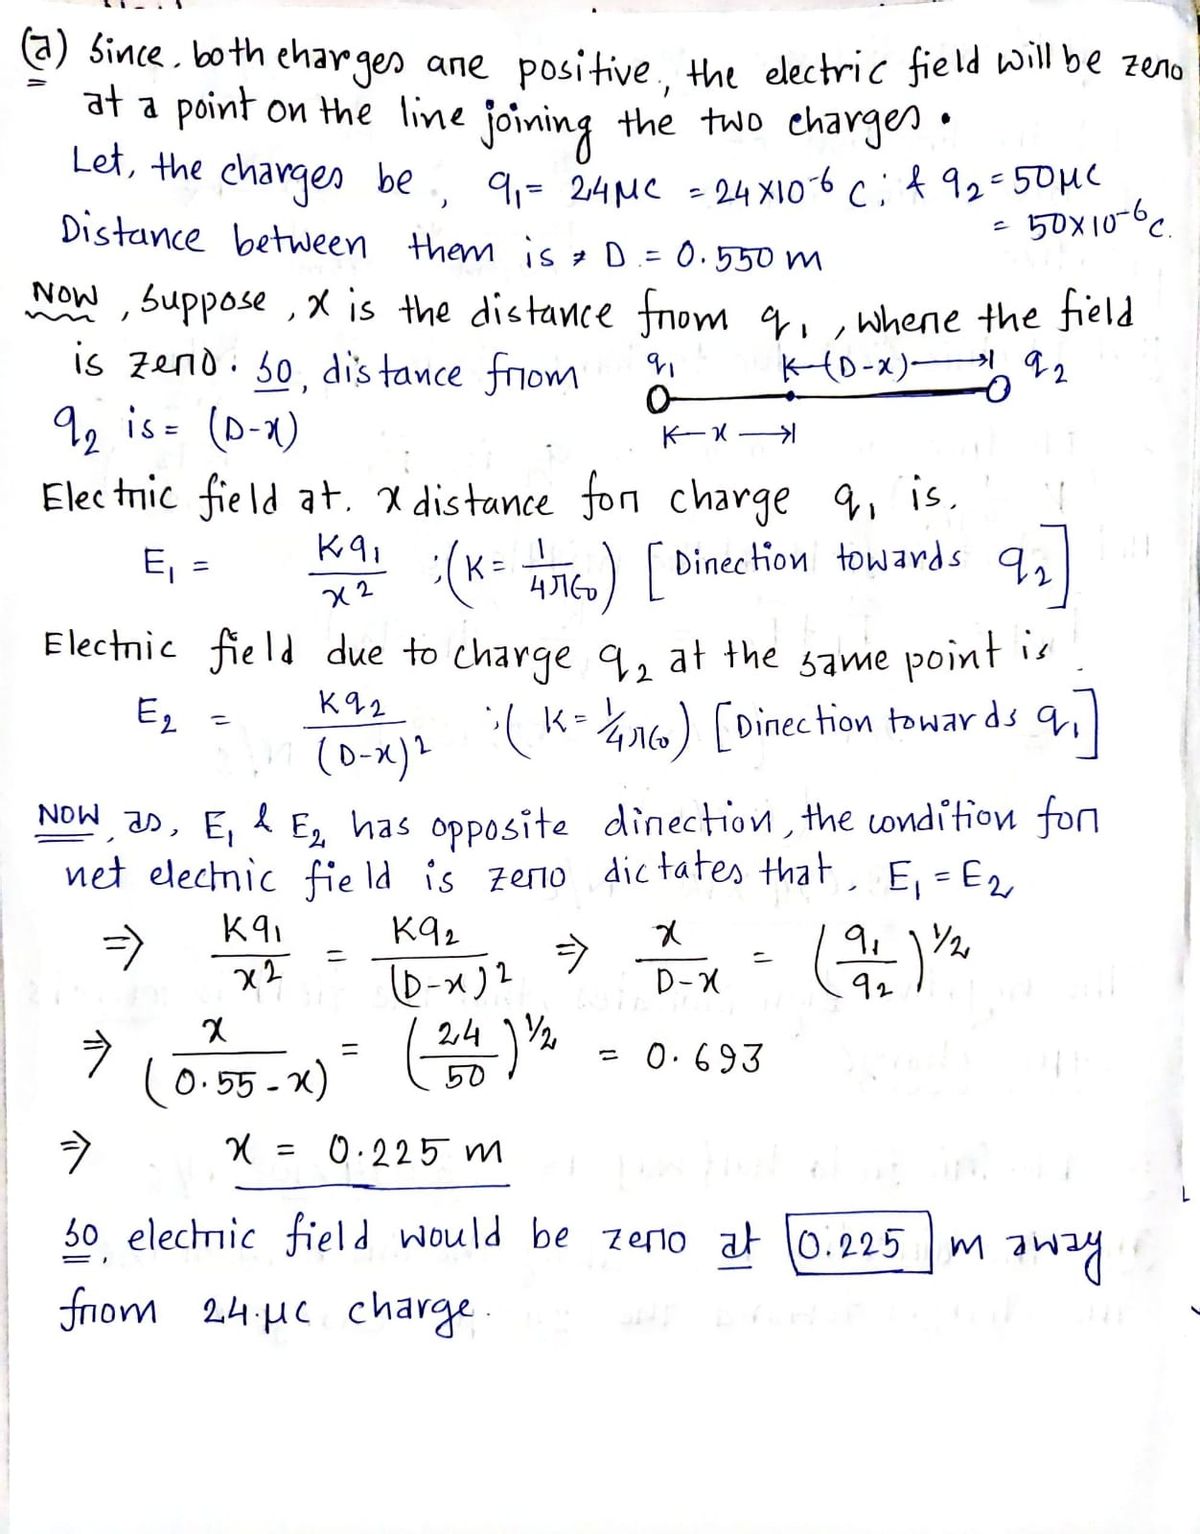 (a) Since, both charges are positive, the electric field will be zero
at a point on the line joining the two charges.
Let, the charges be, q₁ = 24μC = 24×10⁻⁶ C; & q₂ = 50μC
= 50×10⁻⁶ C.
Distance between them is = D = 0.550 m
Now, Suppose, x is the distance from q₁, where the field
is zero. So, distance from
q₁ K-(D-x)→| q₂
q₂ is = (D-x)
K-x→|
Electric field at. x distance for charge q₁ is.
E₁ = Kq₁/x² ;(K = 1/4πϵ₀) [Direction towards q₂]
Electric field due to charge q₂ at the same point is
E₂ = Kq₂/(D-x)² ;(K = 1/4πϵ₀) [Direction towards q₁]
Now, as, E₁ & E₂ has opposite direction, the condition for
net electric field is zero dictates that, E₁ = E₂
⇒ Kq₁/x² = Kq₂/(D-x)² ⇒ x/D-x = (q₁/q₂)^1/2
⇒ x/(0.55-x) = (24/50)^1/2 = 0.693
⇒ x = 0.225 m
So, electric field would be zero at 0.225 m away
from 24.μC charge.